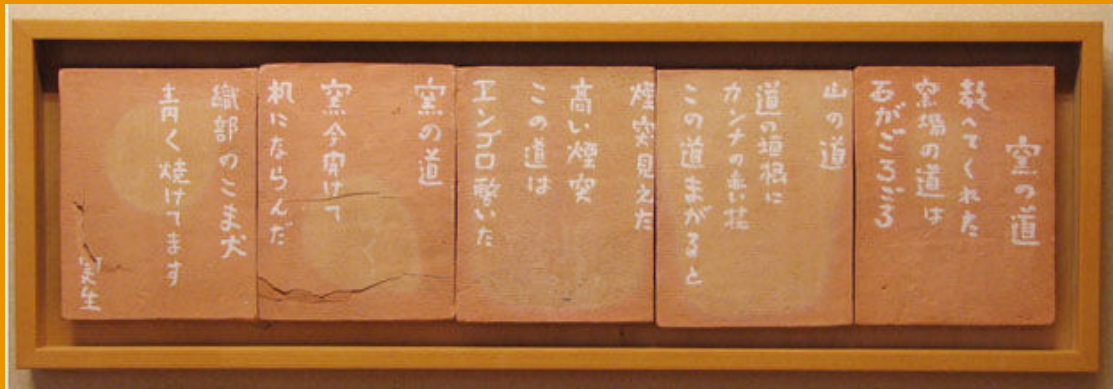 窯の道
教へてくれた
窯場の道は
石がごろごろ
山の道
道の垣根に
カンナの赤い花
この道まがると
煙突見えた
高い煙突
この道は
エンゴロ敷いた
窯の道
窯今開けて
机にならんだ
織部のこま犬
青く焼けてます
実生